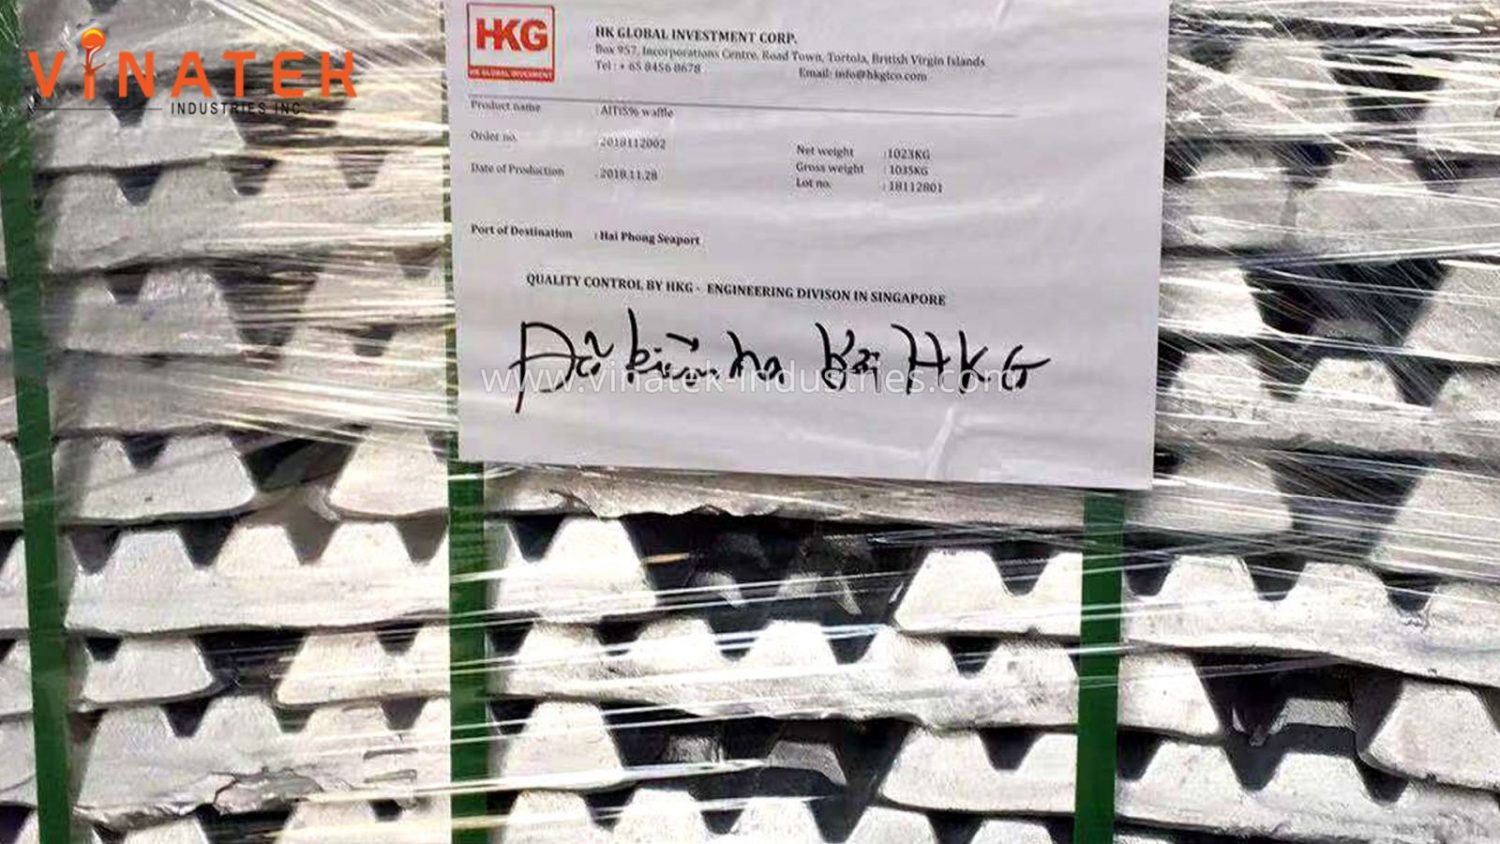 VINATEK
INDUSTRIES INC
HKG
HK GLOBAL INVESTMENT
HK GLOBAL INVESTMENT CORP.
Box 957, Incorporations Centre, Road Town, Tortola, British Virgin Islands
Tel : + 65 8456 8678 Email: info@hkgtco.com
Product name : AlTi5% waffle
Order no. : 2018112002
Date of Production : 2018.11.28
Net weight : 1023KG
Gross weight : 1035KG
Lot no. : 18112801
Port of Destination : Hai Phong Seaport
QUALITY CONTROL BY HKG - ENGINEERING DIVISON IN SINGAPORE
Đã kiểm tra bởi HKG
www.vinatek-industries.com